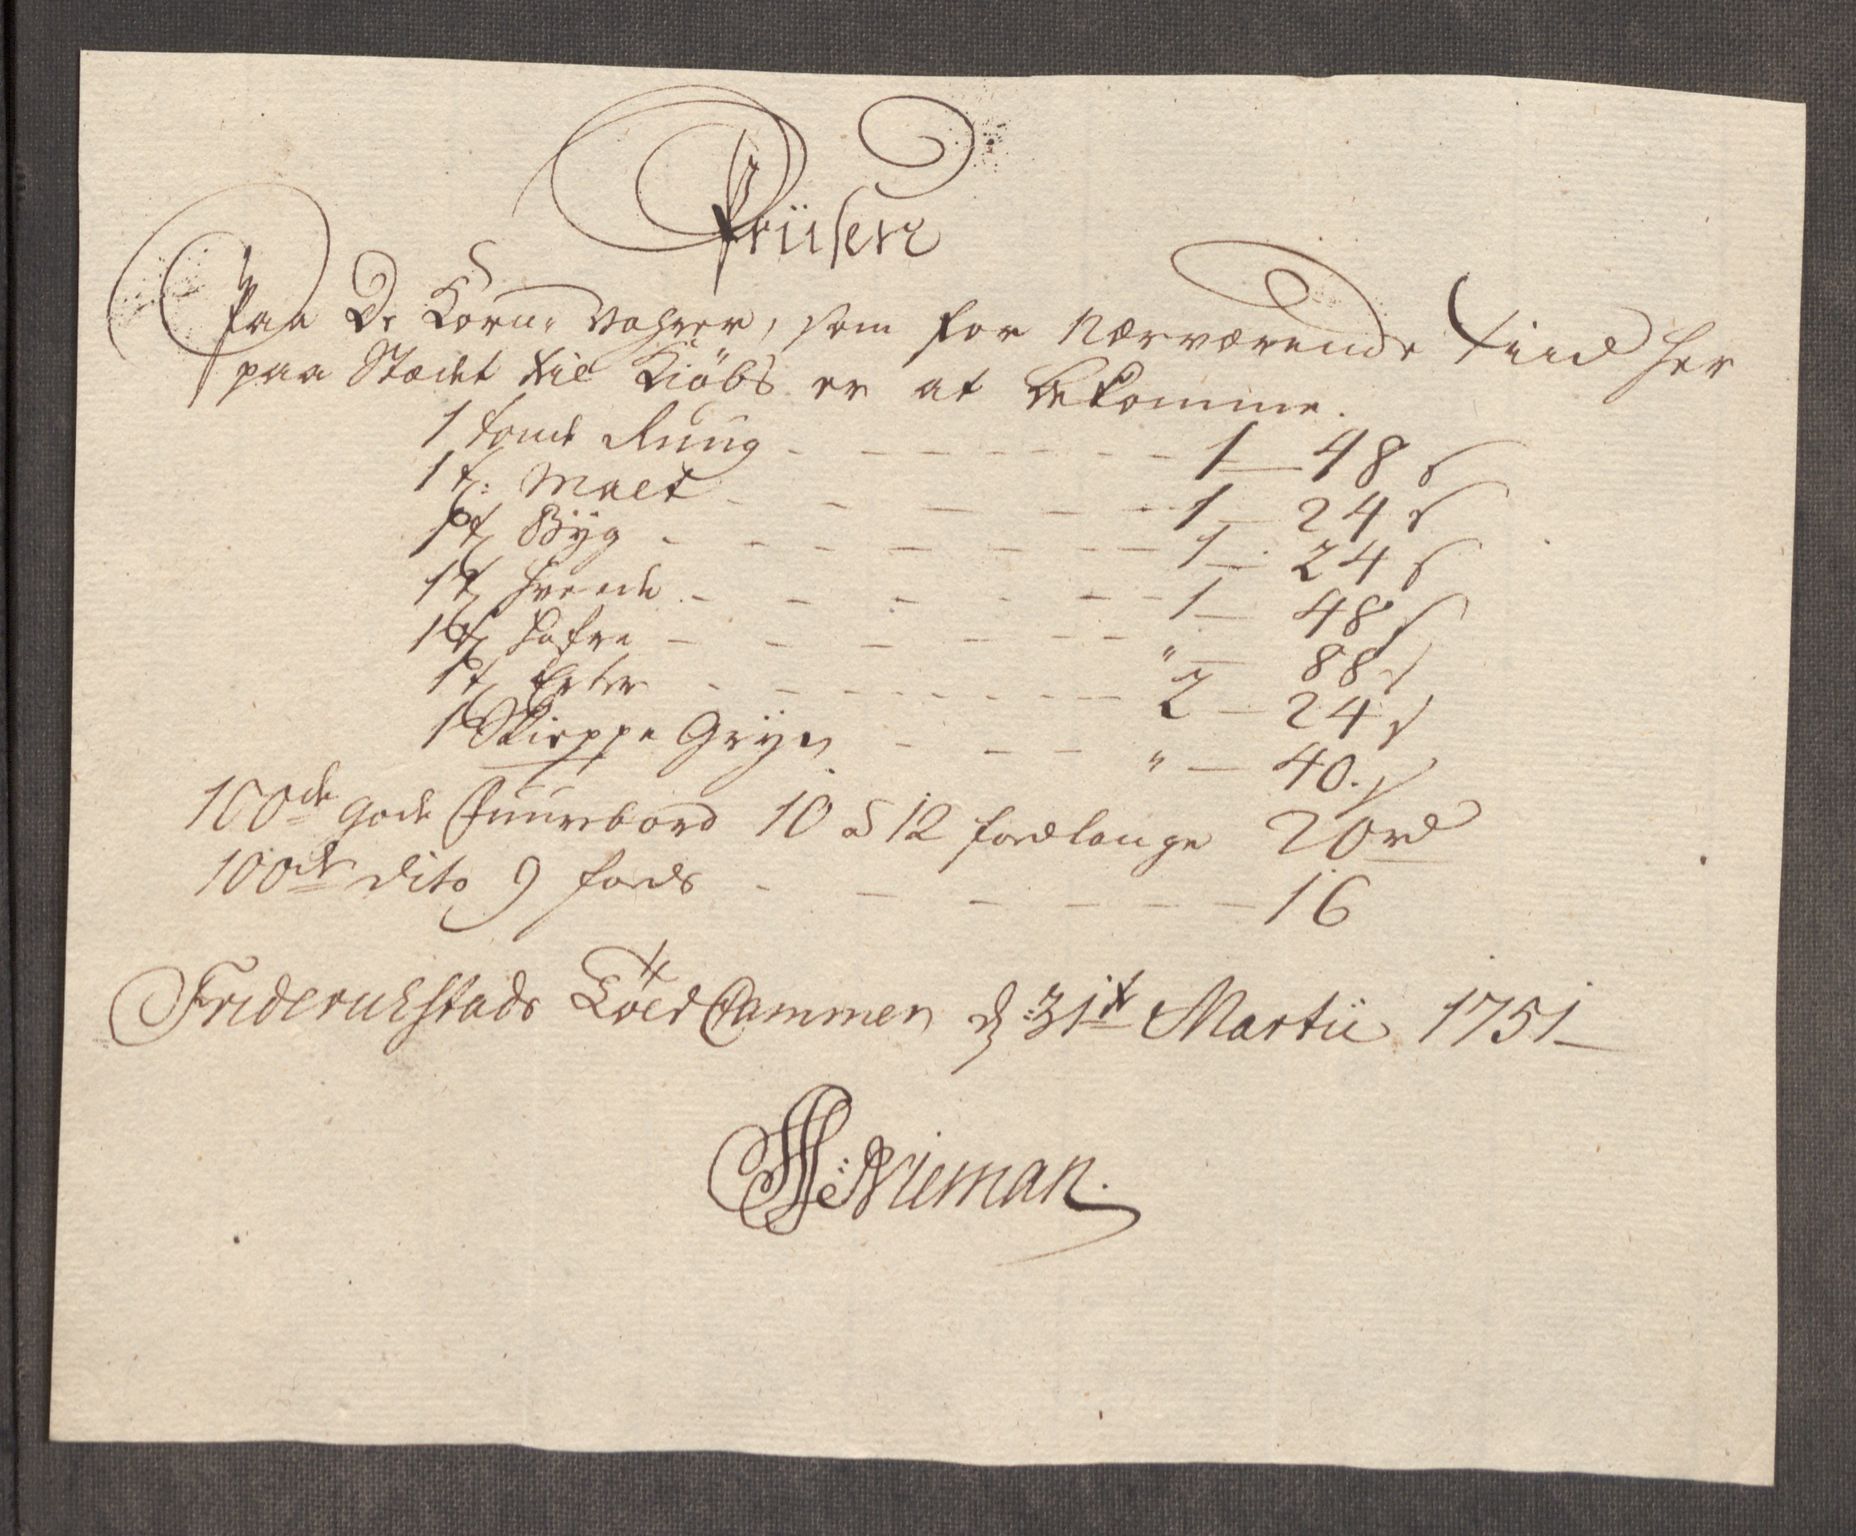 Priisen
Paa De Korn- Vahrer, som for nærværende Tiid her
paa Stædet til Kiöbs er at bekomme.
1 Tönde Ruug - - - - - - - 1 — 48 s
1 t: Malt - - - - - - 1 — 24 s
1 t Byg - - - - - - 1 — 24 s
1 t Hvede - - - - - - 1 — 48 s
1 t Hafre - - - - - - " — 88 s
1 t Erter - - - - - - 2 — 24 s
1 Skieppe Gryn - - - " — 40. s
100de gode Fuurebord 10 à 12 fodlange 20 rd
100de dito 9 fods - - - - - - 16
Friderichstads Told Cammer d 31t Martii 1751
Nieman.